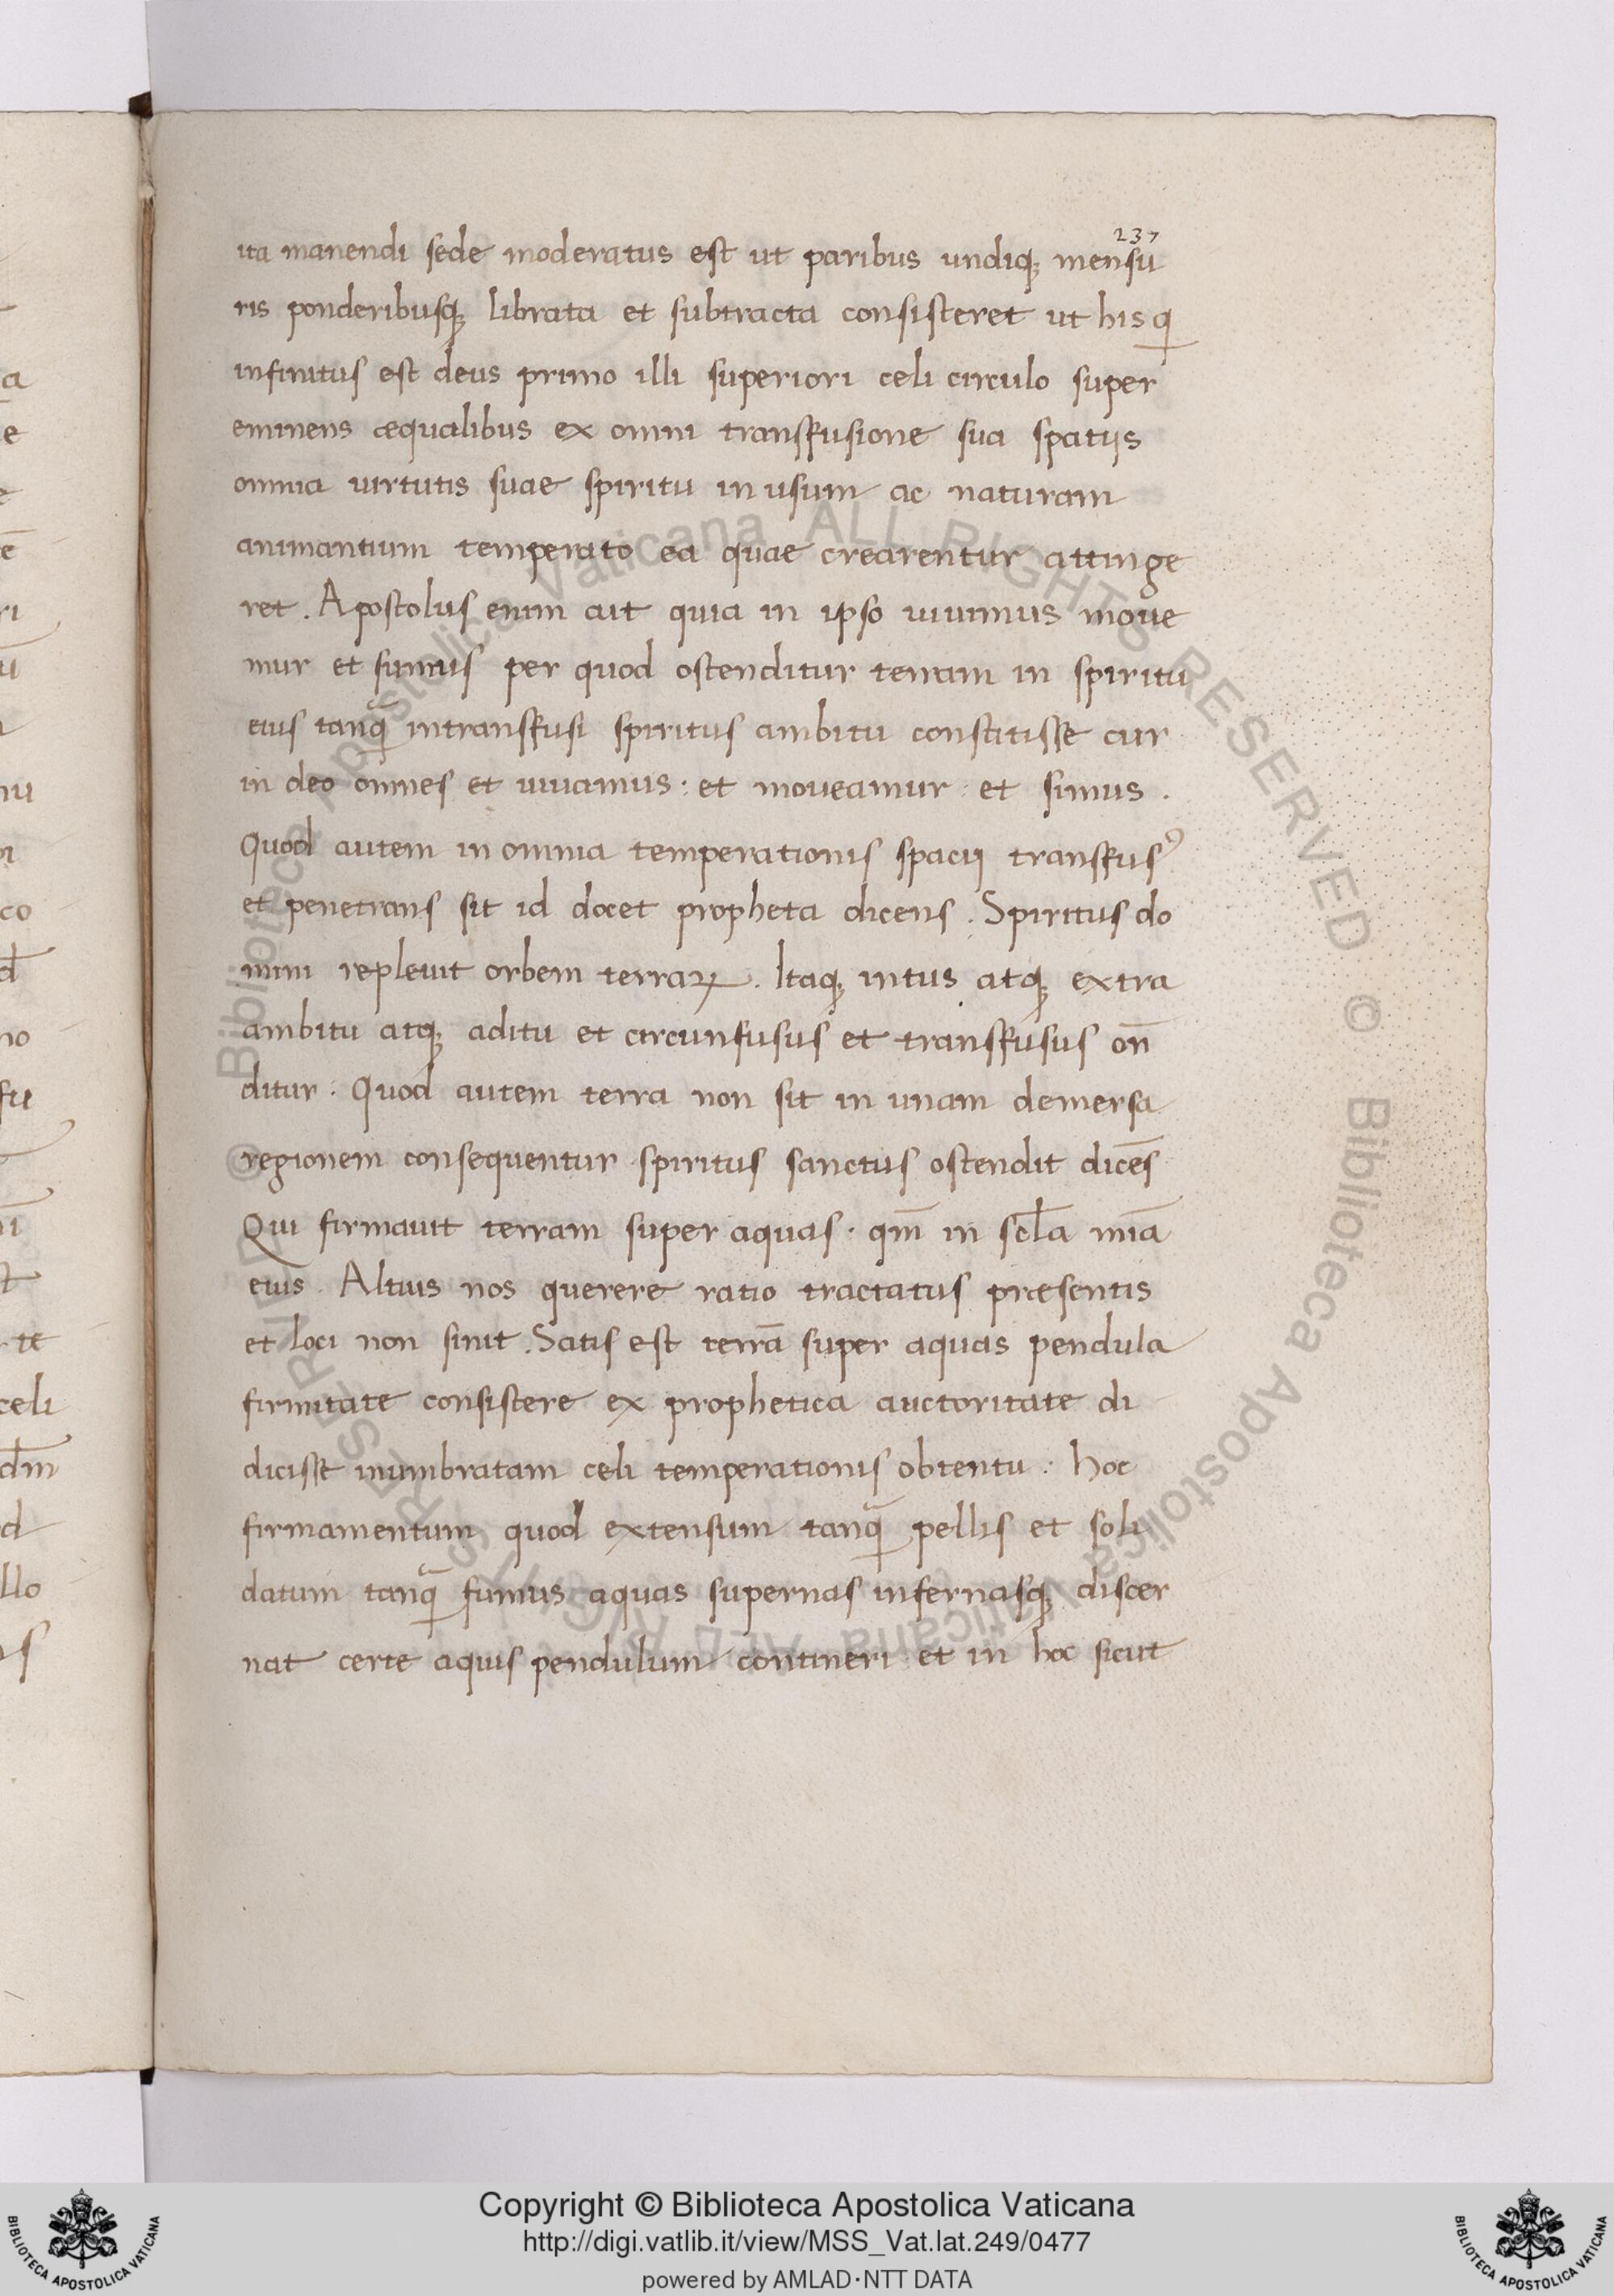 237
ita manendi sede moderatus est ut paribus undiq; mensu
ris ponderibusq; librata et subtracta consisteret ut his q
infinitus est deus primo illi superiori celi circulo super
eminens aequalibus ex omni transfusione sua spatijs
omnia virtutis suae spiritu in usum ac naturam
animantium temperato ea quae crearentur attinge
ret . Apostolus enim ait quia in ipso uiuimus moue
mur et sumus per quod ostenditur terram in spiritu
eius tanq̃ intransfusi spiritus ambitu constitisse cur
in deo omnes et uiuamus : et moueamur : et simus .
Quod autem in omnia temperationis spacij transfusꝰ
et penetrans sit id docet propheta dicens . Spiritus do
mini repleuit orbem terraꝝ . Itaq; intus atq; extra
ambitu atq; aditu et circunfusus et transfusus on̄
ditur : Quod autem terra non sit in unam demersa
regionem consequentur spiritus sanctus ostendit dicēs
Qui firmauit terram super aquas . qm̄ in scl̄a mīa
eius . Altius nos querere ratio tractatus praesentis
et loci non sinit . Satis est terrā super aquas pendula
firmitate consistere ex prophetica auctoritate di
dicisse inumbratam celi temperationis obtentu : hoc
firmamentum quod extensum tanq̃ pellis et soli
datum tanq̃ fumus aquas supernas infernasq; discer
nat certe aquis pendulum contineri et in hoc sicut
Copyright © Biblioteca Apostolica Vaticana
http://digi.vatlib.it/view/MSS_Vat.lat.249/0477
powered by AMLAD·NTT DATA
BIBLIOTECA APOSTOLICA VATICANA
BIBLIOTECA APOSTOLICA VATICANA
© Biblioteca Apostolica Vaticana ALL RIGHTS RESERVED © Biblioteca Apostolica Vaticana ALL RIGHTS RESERVED